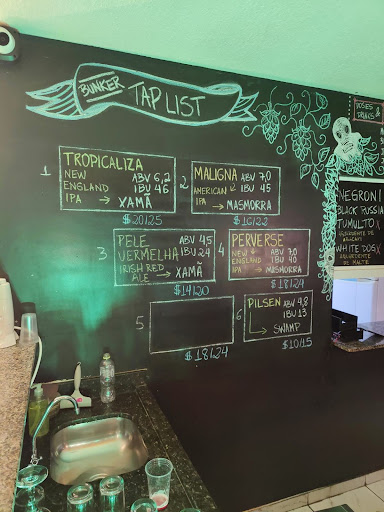 BUNKER TAP LIST
1
TROPICALIZA
NEW ABV 6,2
ENGLAND IBU 46
IPA → XAMÃ
$20/25
2
MALIGNA
ABV 7,0
AMERICAN IBU 45
IPA → MASMORRA
$16/22
3
PELE ABV 4,5
VERMELHA IBU 24
IRISH RED
ALE → XAMÃ
$14/20
4
PERVERSE
NEW ABV 7,0
ENGLAND IBU 40
IPA → MASMORRA
$18/24
5
$18/24
6
PILSEN ABV 4,8
IBU 13
→ SWAMP
$10/15
DOSES
DRINKS
NEGRONI
BLACK RUSSIA
TUMULTO
WHITE DOG
DE MALTE